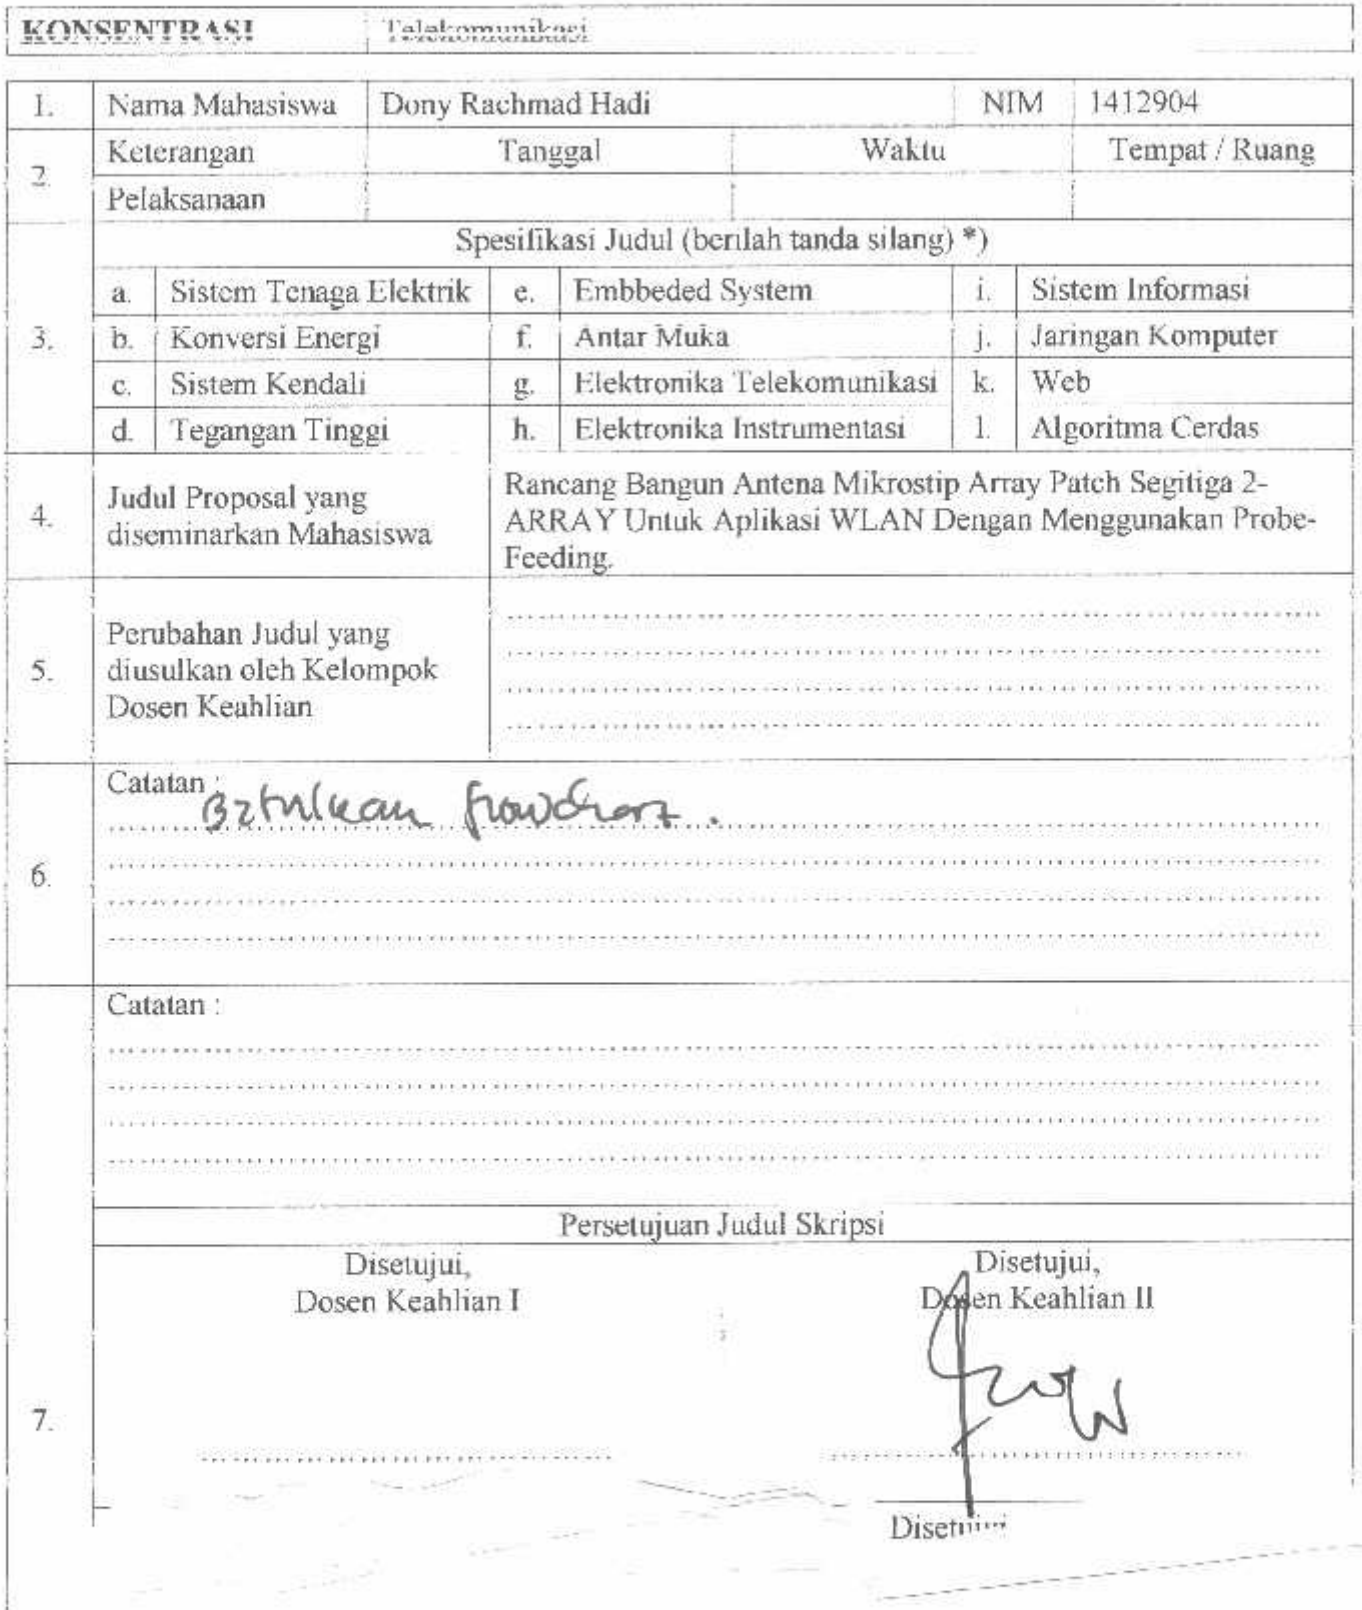 KONSENTRASI Telekomunikasi
1. Nama Mahasiswa Dony Rachmad Hadi NIM 1412904
2. Keterangan Tanggal Waktu Tempat / Ruang
Pelaksanaan
Spesifikasi Judul (berilah tanda silang) *)
3.
a. Sistem Tenaga Elektrik e. Embbeded System i. Sistem Informasi
b. Konversi Energi f. Antar Muka j. Jaringan Komputer
c. Sistem Kendali g. Elektronika Telekomunikasi k. Web
d. Tegangan Tinggi h. Elektronika Instrumentasi l. Algoritma Cerdas
4.
Judul Proposal yang
diseminarkan Mahasiswa
Rancang Bangun Antena Mikrostip Array Patch Segitiga 2-
ARRAY Untuk Aplikasi WLAN Dengan Menggunakan Probe-
Feeding.
5.
Perubahan Judul yang
diusulkan oleh Kelompok
Dosen Keahlian
6.
Catatan :
Betulkan flowchart.
Catatan :
Persetujuan Judul Skripsi
7.
Disetujui,
Dosen Keahlian I
Disetujui,
Dosen Keahlian II
Disetujui